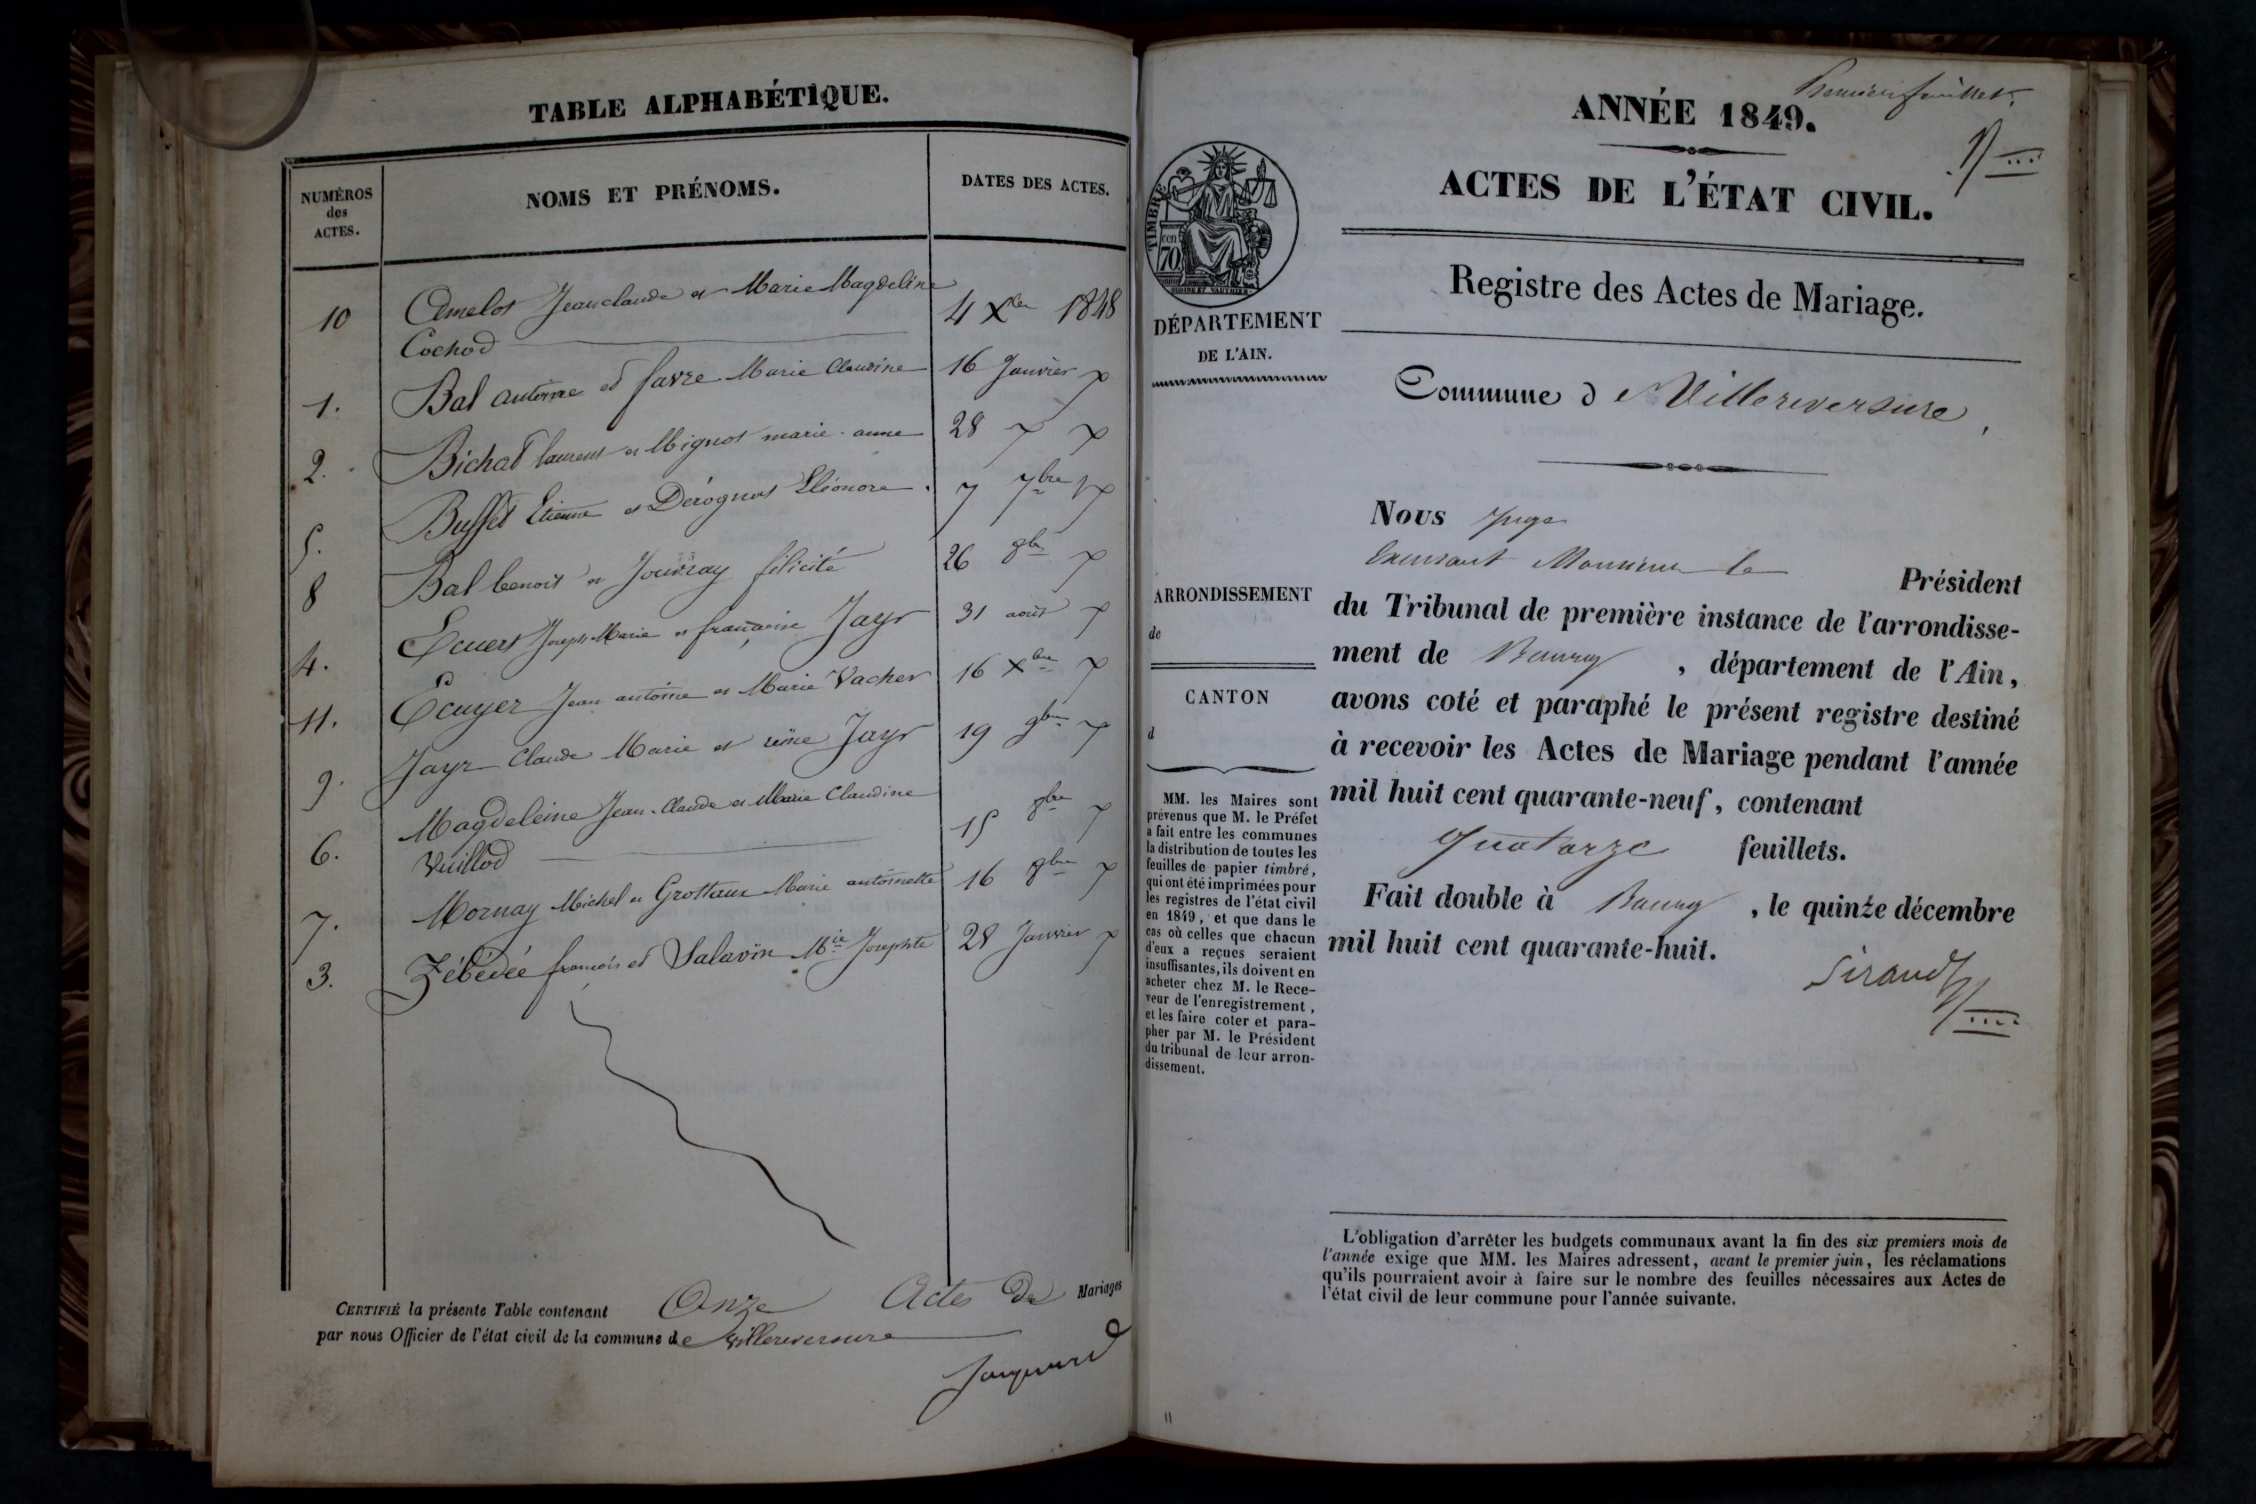 TABLE ALPHABÉTIQUE.
NUMÉROS
des
ACTES.
NOMS ET PRÉNOMS.
DATES DES ACTES.
10 Amelot Jean claude et Marie Magdeline 4 Xbre 1848
Cochod
1. Bal antoine et favre Marie Claudine 16 Janvier
2. Bichat laurent et Mignot marie anne 28
5. Buffet Etienne et Dérognat Eléonore 7 7bre
8 Bal benoit et Jouvray félicité 26 8bre
4. Ecuert Joseph Marie et françoise Jayr 31 août
11. Ecuyer Jean antoine et Marie Vacher 16 Xbre
9. Jayr Claude Marie et reine Jayr 19 9bre
6. Magdeleine Jean-Claude et Marie Claudine 15 8bre
Vuillod
7. Mornay Michel et Grottaux Marie antoinette 16 8bre
3. Zébédée françois et Salavin Mie Josephte 28 Janvier
CERTIFIÉ la présente Table contenant Onze Actes de Mariages
par nous Officier de l'état civil de la commune de Villereversure
Premier feuillet.
ANNÉE 1849.
ACTES DE L'ÉTAT CIVIL.
Registre des Actes de Mariage.
TIMBRE
70
DÉPARTEMENT
DE L'AIN.
Commune de Villereversure
Nous Juge
Monsieur le Président
du Tribunal de première instance de l'arrondisse-
ment de Bourg, département de l'Ain,
avons coté et paraphé le présent registre destiné
à recevoir les Actes de Mariage pendant l'année
mil huit cent quarante-neuf, contenant
quatorze feuillets.
Fait double à Bourg, le quinze décembre
mil huit cent quarante-huit.
Sirand
ARRONDISSEMENT
de
CANTON
d
MM. les Maires sont
prévenus que M. le Préfet
a fait entre les communes
la distribution de toutes les
feuilles de papier timbré,
qui ont été imprimées pour
les registres de l'état civil
en 1849, et que dans le
cas où celles que chacun
d'eux a reçues seraient
insuffisantes, ils doivent en
acheter chez M. le Rece-
veur de l'enregistrement,
et les faire coter et para-
pher par M. le Président
du tribunal de leur arron-
dissement.
L'obligation d'arrêter les budgets communaux avant la fin des six premiers mois de
l'année exige que MM. les Maires adressent, avant le premier juin, les réclamations
qu'ils pourraient avoir à faire sur le nombre des feuilles nécessaires aux Actes de
l'état civil de leur commune pour l'année suivante.